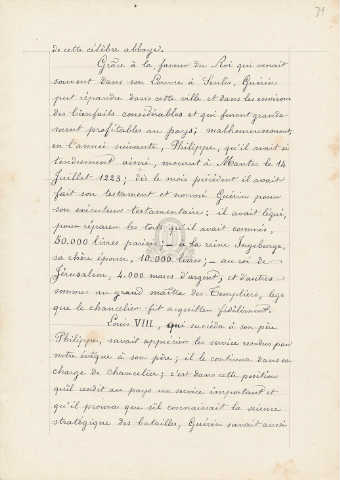 71
de cette célèbre abbaye.
Grâce à la faveur du Roi qui venait
souvent dans son Louvre à Senlis, Guérin
put répandre dans cette ville et dans les environs
des bienfaits considérables et qui furent grande-
ment profitables au pays; malheureusement,
en l'année suivante, Philippe, qu'il avait si
tendrement aimé, mourut à Mantes le 14
Juillet 1223; dès le mois précédent il avait
fait son testament et nommé Guérin pour
son exécuteur testamentaire; il avait légué,
pour réparer les torts qu'il avait commis,
50.000 livres parisis; — à la reine Ingeburge,
sa chère épouse, 10.000 livres; — au roi de
Jérusalem, 4.000 marcs d'argent, et d'autres
sommes au grand maître des Templiers, legs
que le chancelier fit acquitter fidèlement.
Louis VIII, qui succéda à son père
Philippe, savait apprécier les services rendus par
notre évêque à son père; il le continua dans sa
charge de chancelier; c'est dans cette position
qu'il rendit au pays un service important et
qu'il prouva que s'il connaissait la science
stratégique des batailles, Guérin savait aussi